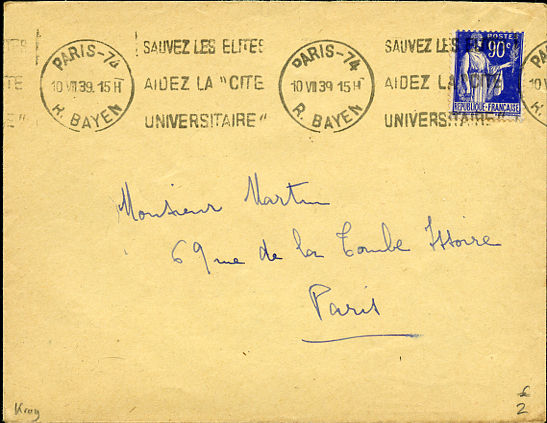 PARIS-74
10 VII 39. 15 H
R. BAYEN
SAUVEZ LES ELITES
AIDEZ LA "CITE
UNIVERSITAIRE"
PARIS-74
10 VII 39 15 H
R. BAYEN
SAUVEZ LES
AIDEZ LA "CITE
UNIVERSITAIRE"
POSTES
90c
REPUBLIQUE-FRANÇAISE
Monsieur Martin
69 rue de la Tombe Issoire
Paris
£
2